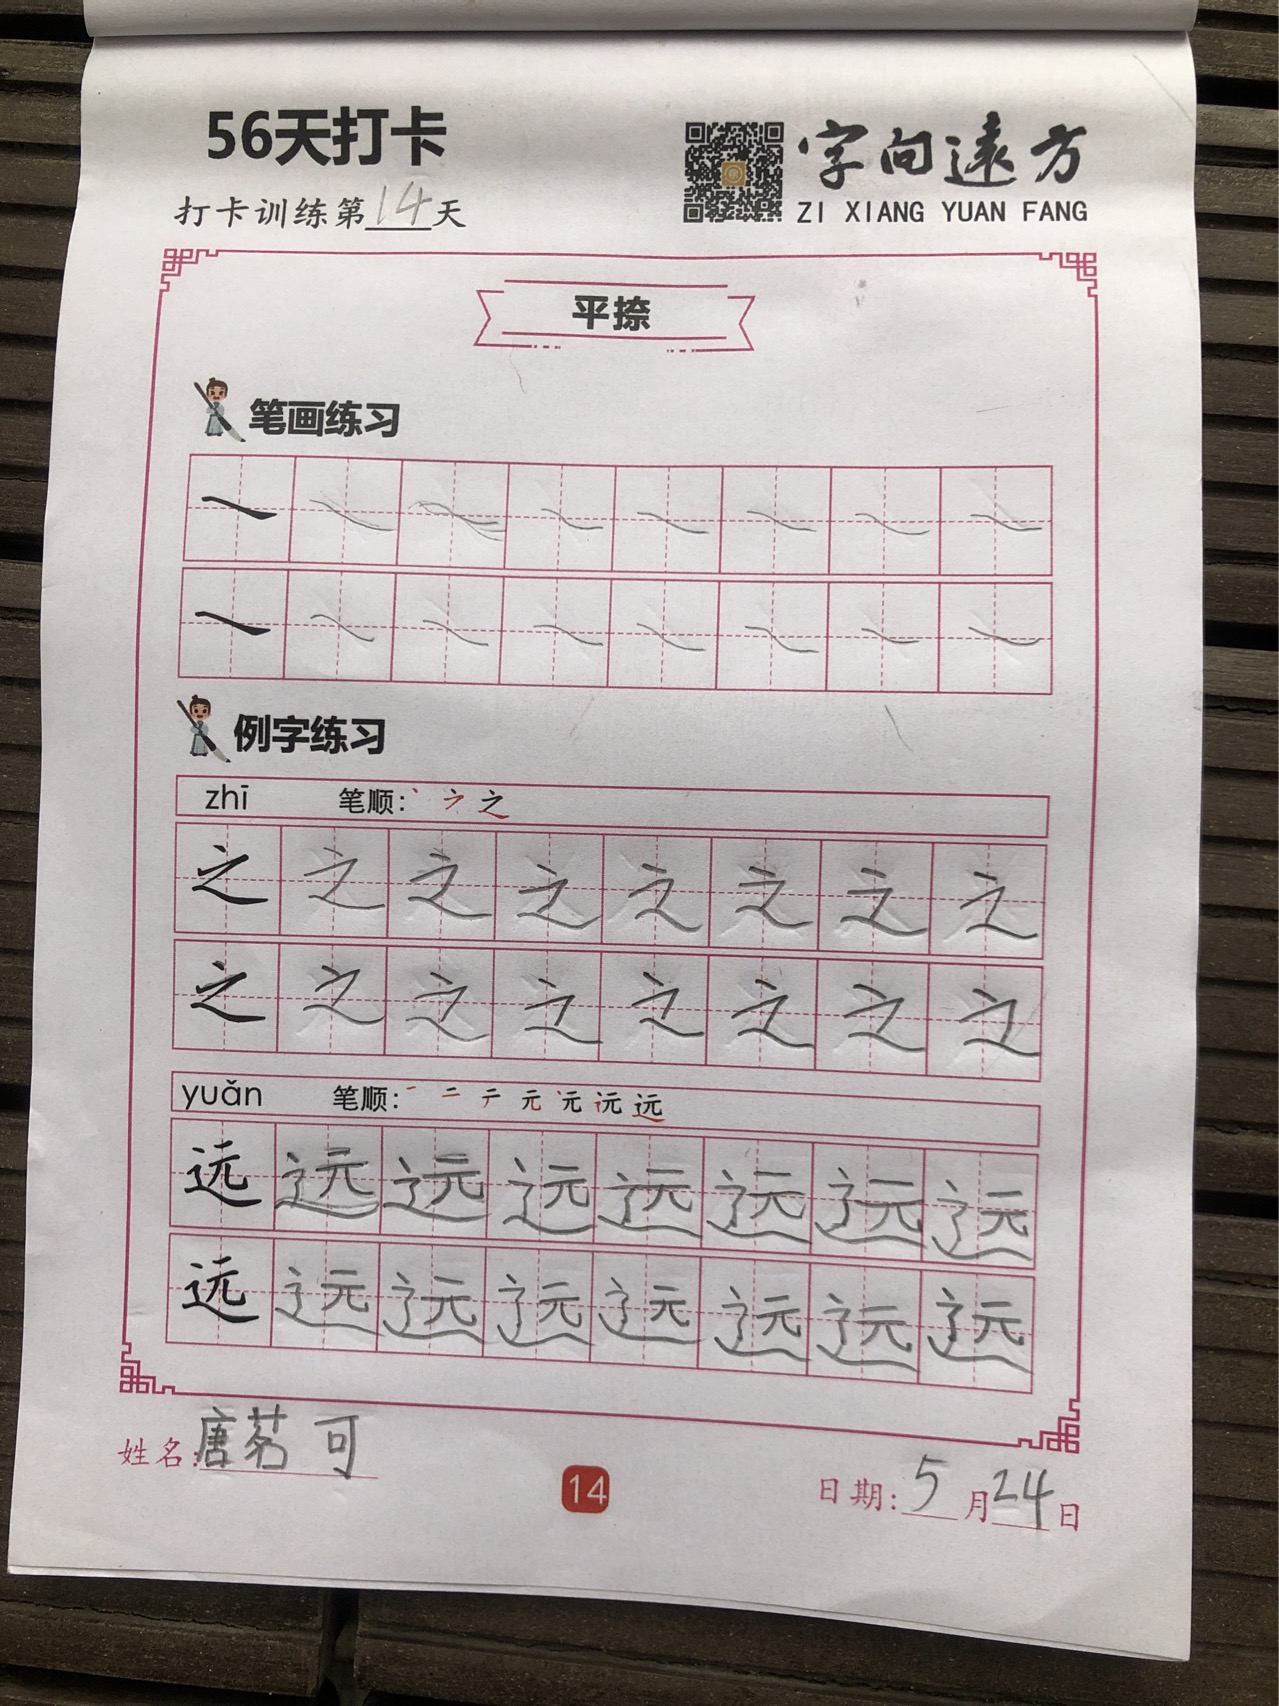 56天打卡
字向遠方
打卡训练第14天
ZI XIANG YUAN FANG
平捺
笔画练习
例字练习
zhī 笔顺: 丶 ㇇ 之
之 之 之 之 之 之 之 之
之 之 之 之 之 之 之 之
yuǎn 笔顺: 一 二 テ 元 远
远 远 远 远 远 远 远 远
远 远 远 远 远 远 远 远
姓名: 唐茗可
14
日期: 5月24日